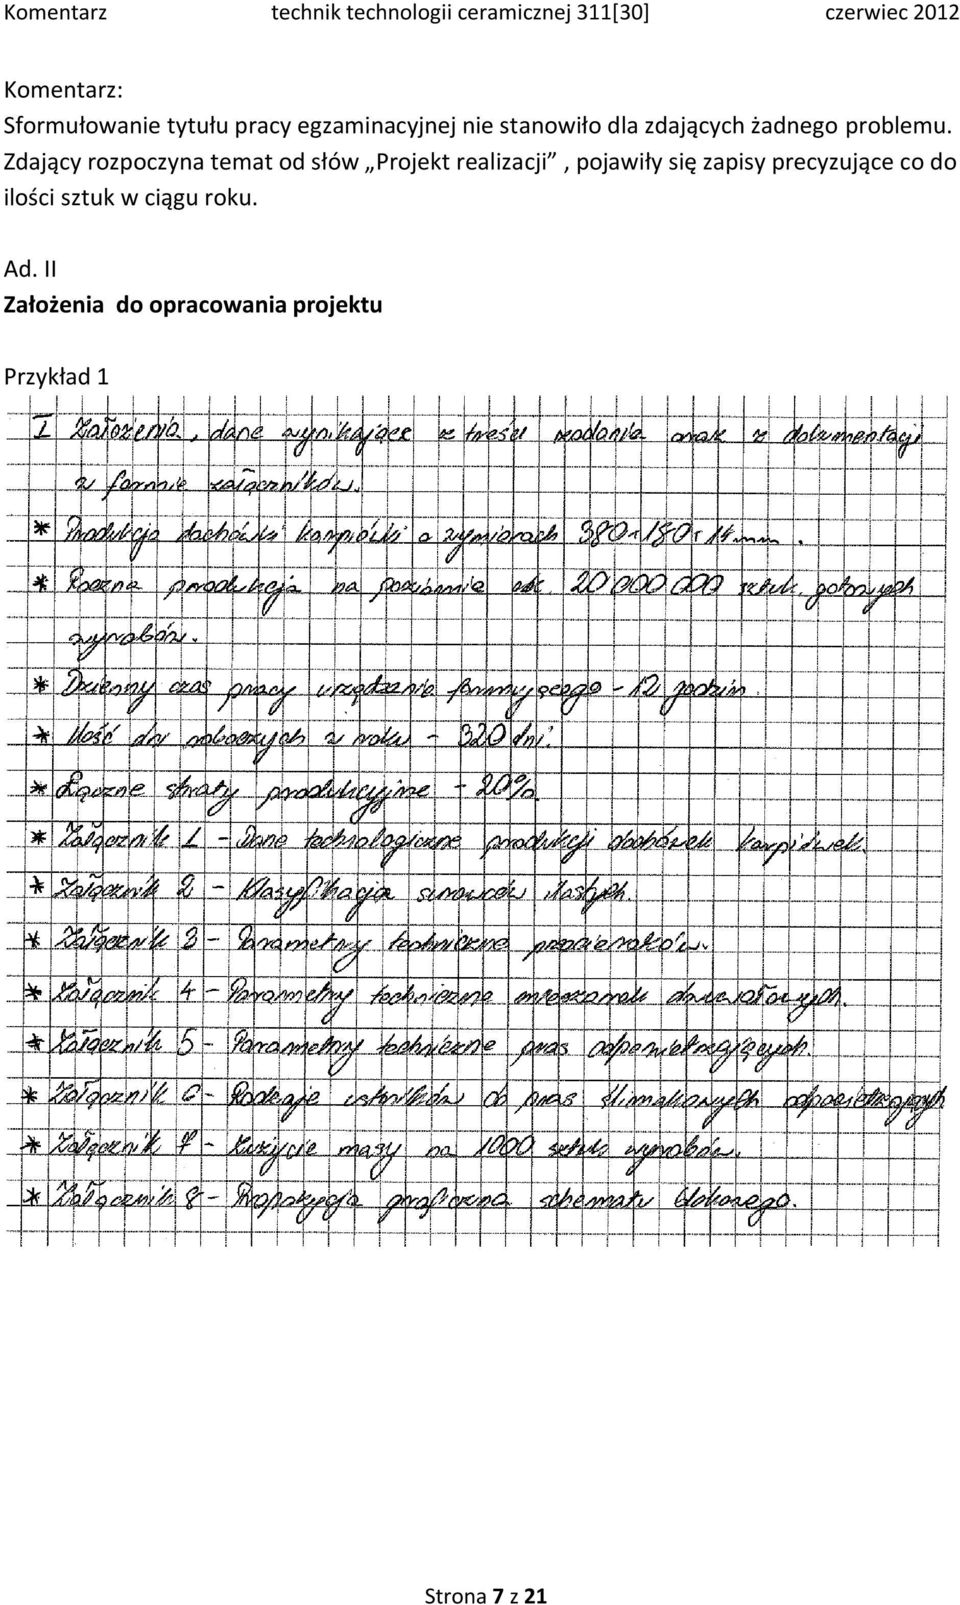 Komentarz technik technologii ceramicznej 311[30] czerwiec 2012
Komentarz:
Sformułowanie tytułu pracy egzaminacyjnej nie stanowiło dla zdających żadnego problemu.
Zdający rozpoczyna temat od słów „Projekt realizacji” , pojawiły się zapisy precyzujące co do
ilości sztuk w ciągu roku.
Ad. II
Założenia do opracowania projektu
Przykład 1
I Założenia, dane wynikające z treści zadania oraz z dokumentacji
w formie załączników.
* Produkcja dachówki karpiówki o wymiarach 380×180×14 mm.
* Roczna produkcja na poziomie ok. 20 000 000 sztuk gotowych
wyrobów.
* Dzienny czas pracy urządzenia formującego - 12 godzin.
* Ilość dni roboczych w roku - 320 dni.
* Łączne straty produkcyjne - 20%.
* Załącznik 1 - Dane technologiczne produkcji dachówek karpiówek.
* Załącznik 2 - Klasyfikacja surowców ilastych.
* Załącznik 3 - Parametry techniczne przecieraków.
* Załącznik 4 - Parametry techniczne mieszarek dwuwałowych.
* Załącznik 5 - Parametry techniczne pras odpowietrzających.
* Załącznik 6 - Rodzaje ustników do pras ślimakowych odpowietrzających
* Załącznik 7 - Zużycie masy na 1000 sztuk wyrobów.
* Załącznik 8 - Propozycja graficzna schematu blokowego.
Strona 7 z 21